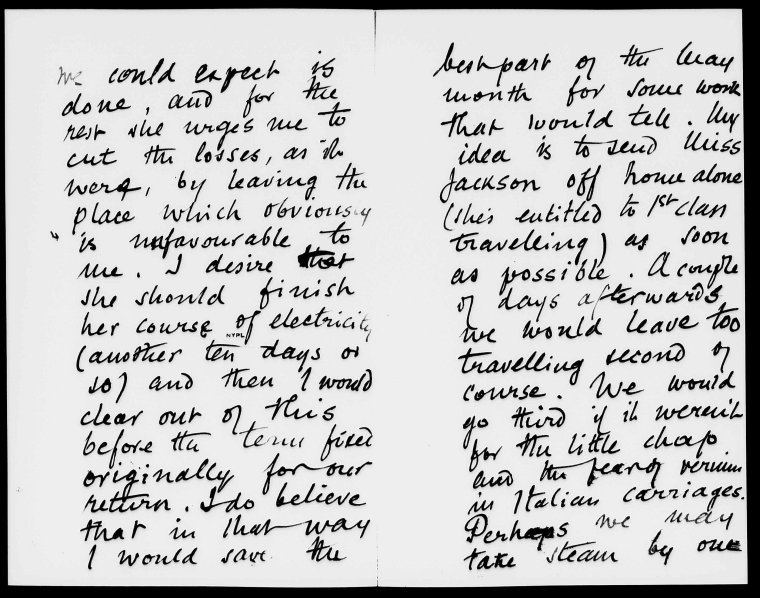 we could expect is
done, and for the
rest she urges me to
cut the losses, as it
were, by leaving the
place which obviously
is unfavourable to
me. I desire that
she should finish
her course of electricity
NYPL
(another ten days or
so) and then I would
clear out of this
before the term fixed
originally for our
return. I do believe
that in that way
I would save the
best part of the May
month for some work
that would tell. My
idea is to send Miss
Jackson off home alone
(she's entitled to 1st class
travelling) as soon
as possible. A couple
of days afterwards
we would leave too
travelling second of
course. We would
go third if it weren't
for the little chap
and the fear of vermin
in Italian carriages.
Perhaps we may
take steam by one